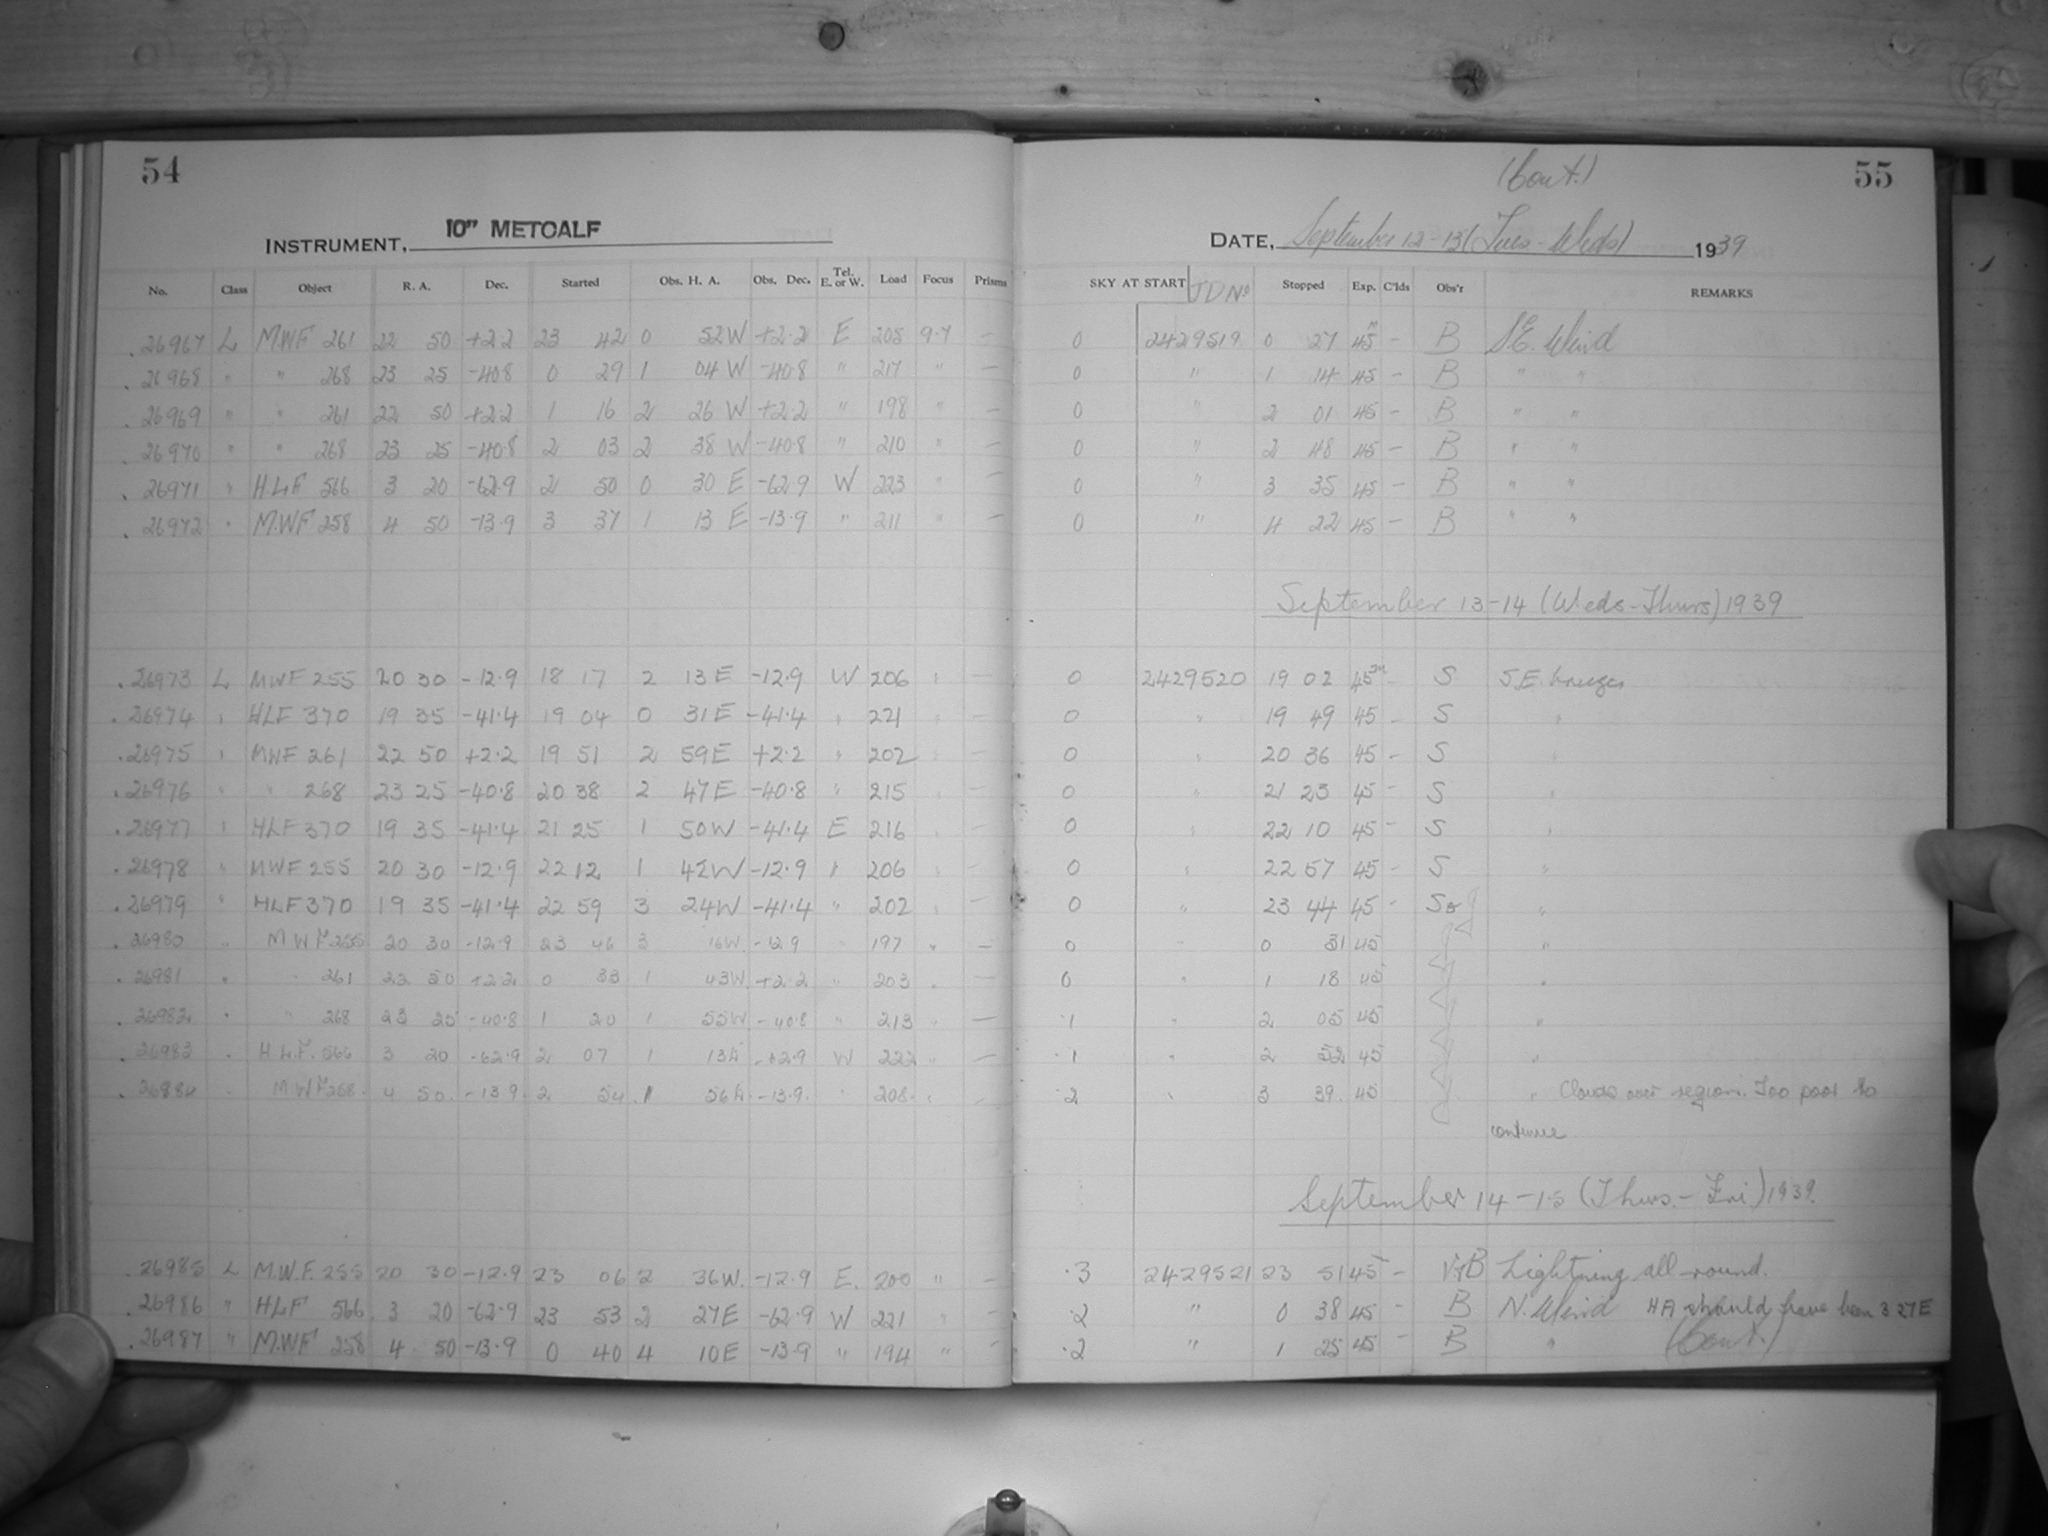 54
INSTRUMENT, 10" METCALF
No. Class Object R. A. Dec. Started Obs. H. A. Obs. Dec. Tel. E. or W. Load Focus Prisms
26967 L MWF 261 22 50 +2.2 23 42 0 52W +2.2 E 205 9.7 —
26968 " " 268 23 25 -40.8 0 29 1 04 W -40.8 " 217 " —
26969 " " 261 22 50 +2.2 1 16 2 26 W +2.2 " 198 " —
26970 " " 268 23 25 -40.8 2 03 2 38 W -40.8 " 210 " —
26971 " HLF 566 3 20 -62.9 2 50 0 30 E -62.9 W 223 " —
26972 " M.WF 258 4 50 -13.9 3 37 1 13 E -13.9 " 211 " —
26973 L MWF 255 20 30 -12.9 18 17 2 13 E -12.9 W 206 " —
26974 " HLF 370 19 35 -41.4 19 04 0 31E -41.4 " 221 " —
26975 " MWF 261 22 50 +2.2 19 51 2 59E +2.2 " 202 " —
26976 " " 268 23 25 -40.8 20 38 2 47E -40.8 " 215 " —
26977 " HLF 370 19 35 -41.4 21 25 1 50W -41.4 E 216 " —
26978 " MWF 255 20 30 -12.9 22 12 1 42W -12.9 " 206 " —
26979 " HLF 370 19 35 -41.4 22 59 3 24W -41.4 " 202 " —
26980 " MWF 255 20 30 -12.9 23 46 3 16W -12.9 " 197 " —
26981 " " 261 22 50 +2.2 0 33 1 43W +2.2 " 203 " —
26982 " " 268 23 25 -40.8 1 20 1 55W -40.8 " 213 " —
26983 " H.L.F. 566 3 20 -62.9 2 07 1 13E -62.9 W 222 " —
26984 " MWF 258 4 50 -13.9 2 54 1 56E -13.9 " 208 "
26985 L M.W.F. 255 20 30 -12.9 23 06 2 36W. -12.9 E. 200 " —
26986 " HLF 566 3 20 -62.9 23 53 2 27E -62.9 W 221 " —
26987 " M.WF 258 4 50 -13.9 0 40 4 10E -13.9 " 194 " —
(Cont.) 55
DATE, September 12-13 (Tues-Weds) 1939
SKY AT START JD No Stopped Exp. C'lds Obs'r REMARKS
0 2429519 0 27 45m — B S.E. Wind
0 " 1 14 45 — B " "
0 " 2 01 45 — B " "
0 " 2 48 45 — B " "
0 " 3 35 45 — B " "
0 " 4 22 45 — B " "
September 13-14 (Weds-Thurs) 1939
0 2429520 19 02 45m — S S.E. breeze
0 " 19 49 45 — S "
0 " 20 36 45 — S "
0 " 21 23 45 — S "
0 " 22 10 45 — S "
0 " 22 57 45 — S "
0 " 23 44 45 — "
0 " 0 31 45 "
0 " 1 18 45 "
.1 " 2 05 45 "
.1 " 2 52 45 "
.2 " 3 39 45 " Clouds over region. Too poor to
continue
September 14-15 (Thurs.-Fri) 1939.
.3 2429521 23 51 45 — B Lightning all-round.
.2 " 0 38 45 — B N. Wind HA should have been 3 27E
.2 " 1 25 45 — B " (Cont.)